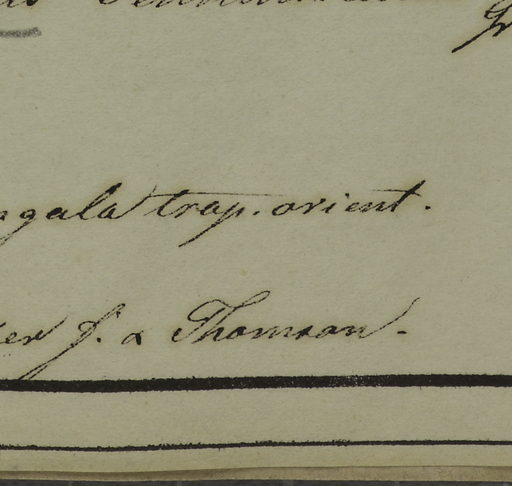 ngala trop. orient.
er f. & Thomson.